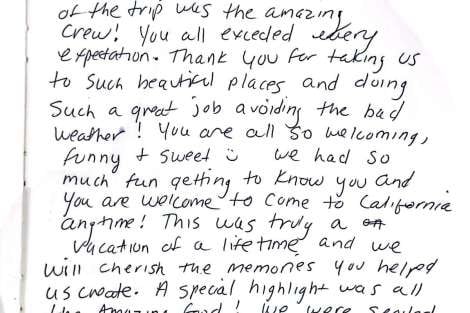 of the trip was the amazing
Crew! You all exceded every
expectation. Thank you for taking us
to such beautiful places and doing
such a great job avoiding the bad
weather! You are all so welcoming,
funny + sweet ☺ we had so
much fun getting to know you and
you are welcome to come to California
anytime! This was truly a
vacation of a lifetime and we
will cherish the memories you helped
us create. A special highlight was all
the amazing food! We were